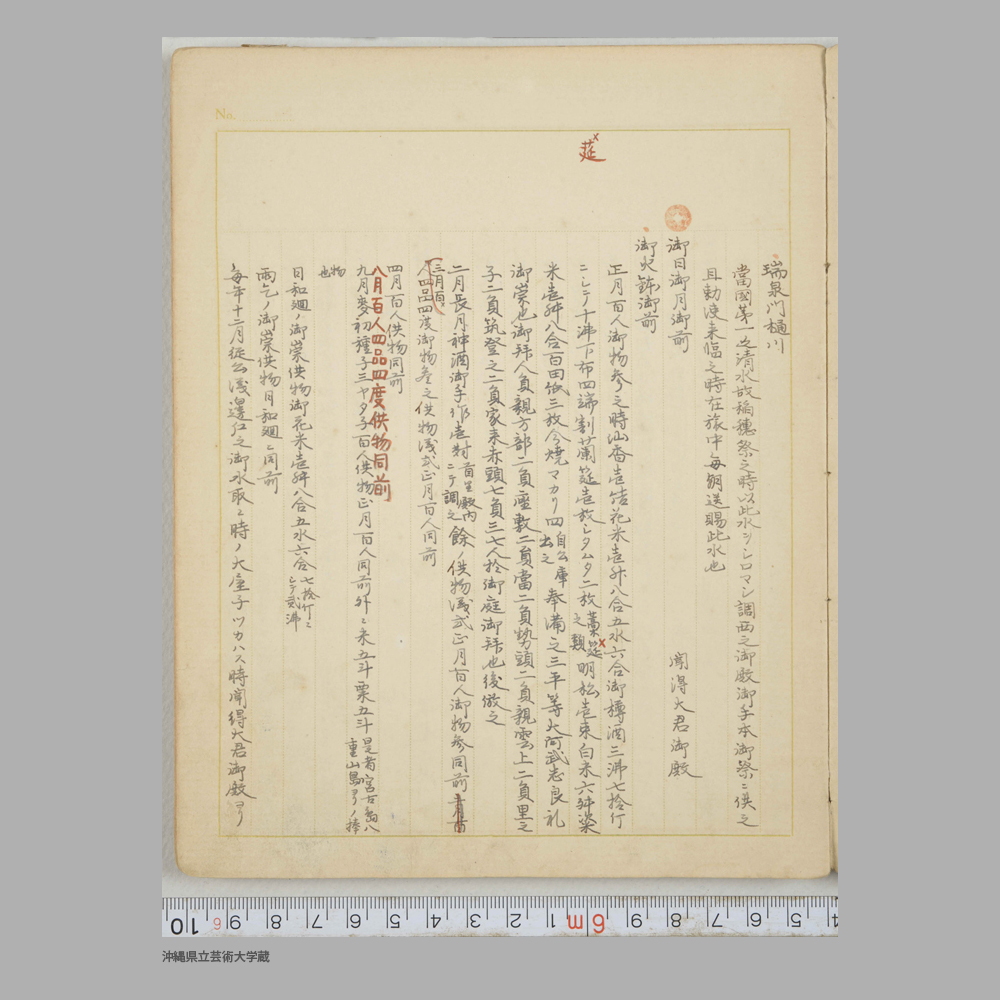 No.
莚
瑞泉川樋川
當國第一之清水故稲穂祭之時以此水ヲシロマシ調西之御殿御手本御祭ニ供之
且勅使来臨之時在旅中毎朝送賜此水也
御日御月御前
聞得大君御殿
御火鉢御前
正月百人御物参之時仙香壱結花米壱舛八合五水六合御樽酒三沸七拾行
ニシテ十沸下布四端割蘭莚壱放シタムタ二放藁莚之類明松壱束白米六舛染
米壱舛八合百田紙三放今焼マカリ四自公庫出之奉備之三平等大阿武志良礼
御崇也御拜人負親方部二負座敷二負當二負勢頭二負親雲上二負里之
子二負筑登之二負家来赤頭七負三七人於御庭御拜也後倣之
二月長月神酒御手作壱対首里殿内ニテ調之餘ノ供物儀式正月百人御物参同前
三月百人四品四度御物参之供物儀式正月百人同前
四月百人供物同前
八月百人四品四度供物同前
九月麦初種子三ヤタ子百人供物正月百人同前外ニ米五斗粟五斗是者宮古島八重山島ヨリノ捧物也
日和廻ノ御崇供物御花米壱舛八合五水六合七拾行ニシテ弐沸
雨乞ノ御崇供物日和廻ニ同前
毎年十二月従公儀邊江之御水取之時ノ大童子ツカハス時聞得大君御殿ヨリ
沖縄県立芸術大学蔵